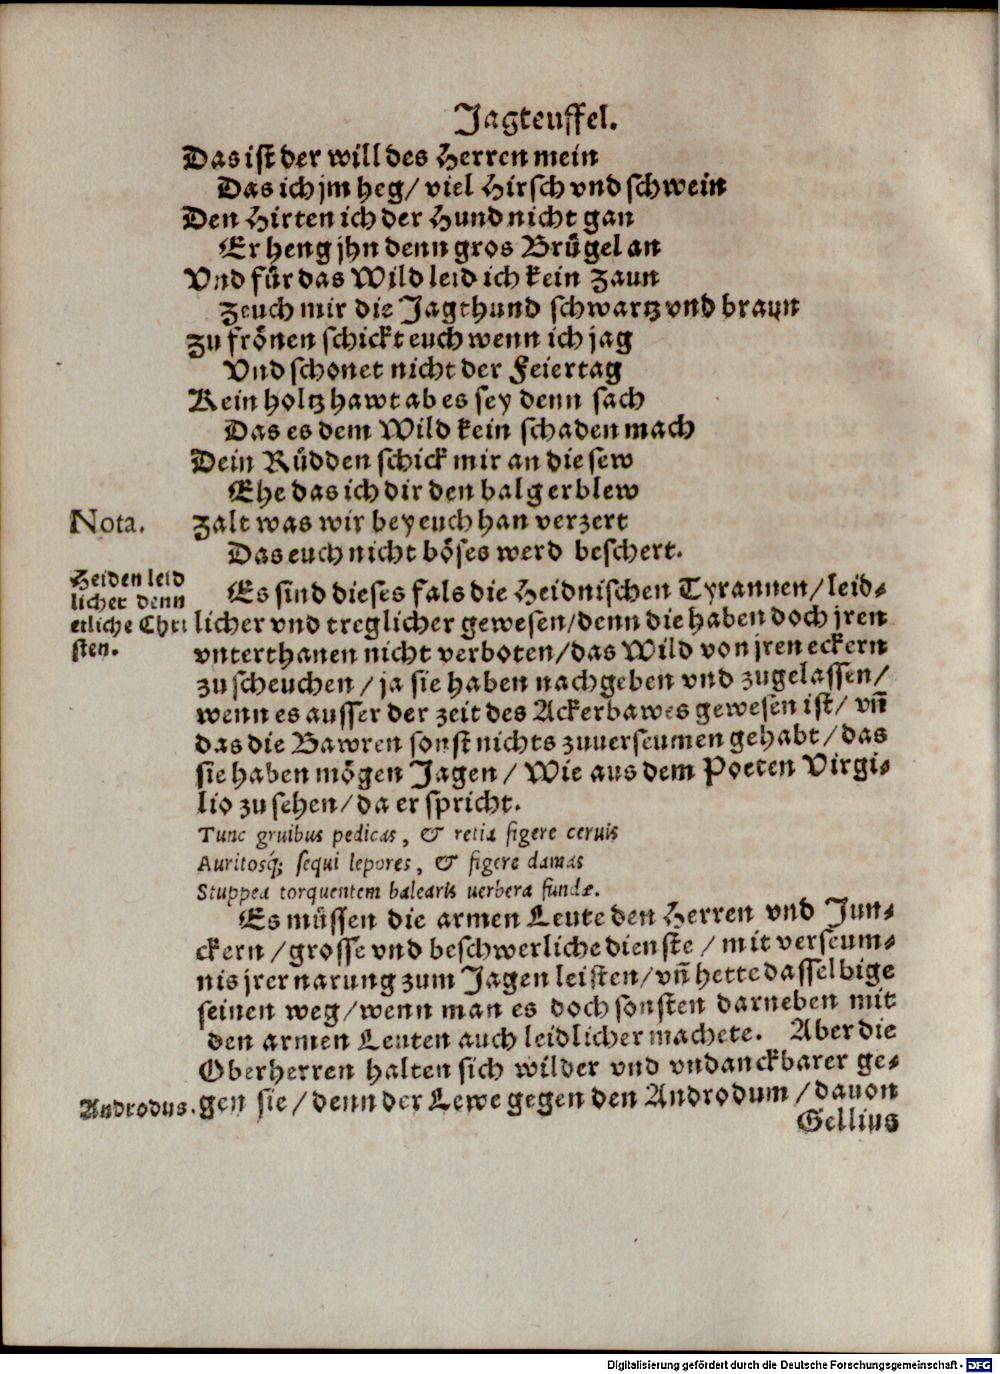 Jagteuffel.
Das ist der will des Herren mein
Das ich jm heg/ viel Hirsch vnd schwein
Den Hirten ich der Hund nicht gan
Er heng jhn denn gros Bruͤgel an
Vnd fuͤr das Wild leid ich kein Zaun
Zeuch mir die Jagthund schwartz vnd braun
Zu froͤnen schickt euch wenn ich jag
Vnd schonet nicht der Feiertag
Kein holtz hawt ab es sey denn sach
Das es dem Wild kein schaden mach
Dein Ruͤdden schick mir an die sew
Ehe das ich dir den balg erblew
Nota.
Zalt was wir bey euch han verzert
Das euch nicht boͤses werd beschert.
Heiden leid
licher denn
etliche Chri
sten.
Es sind dieses fals die Heidnischen Tyrannen/ leid-
licher vnd treglicher gewesen/ denn die haben doch jren
vnterthanen nicht verboten/ das Wild von jren eckern
zu scheuchen/ ja sie haben nachgeben vnd zugelassen/
wenn es ausser der zeit des Ackerbawes gewesen ist/ vñ
das die Bawren sonst nichts zuuerseumen gehabt/ das
sie haben moͤgen Jagen/ Wie aus dem Poeten Virgi-
lio zu sehen/ da er spricht.
Tunc gruibus pedicas, & retia figere ceruis
Auritosq́; sequi lepores, & figere damas
Stuppea torquentem balearis uerbera fundæ.
Es muͤssen die armen Leute den Herren vnd Jun-
ckern/ grosse vnd beschwerliche dienste/ mit verseum-
nis jrer narung zum Jagen leisten/ vñ hette dasselbige
seinen weg/ wenn man es doch sonsten darneben mit
den armen Leuten auch leidlicher machete. Aber die
Oberherren halten sich wilder vnd vndanckbarer ge-
Androdus.
gen sie/ denn der Lewe gegen den Androdum/ dauon
Gellius
Digitalisierung gefördert durch die Deutsche Forschungsgemeinschaft - DFG